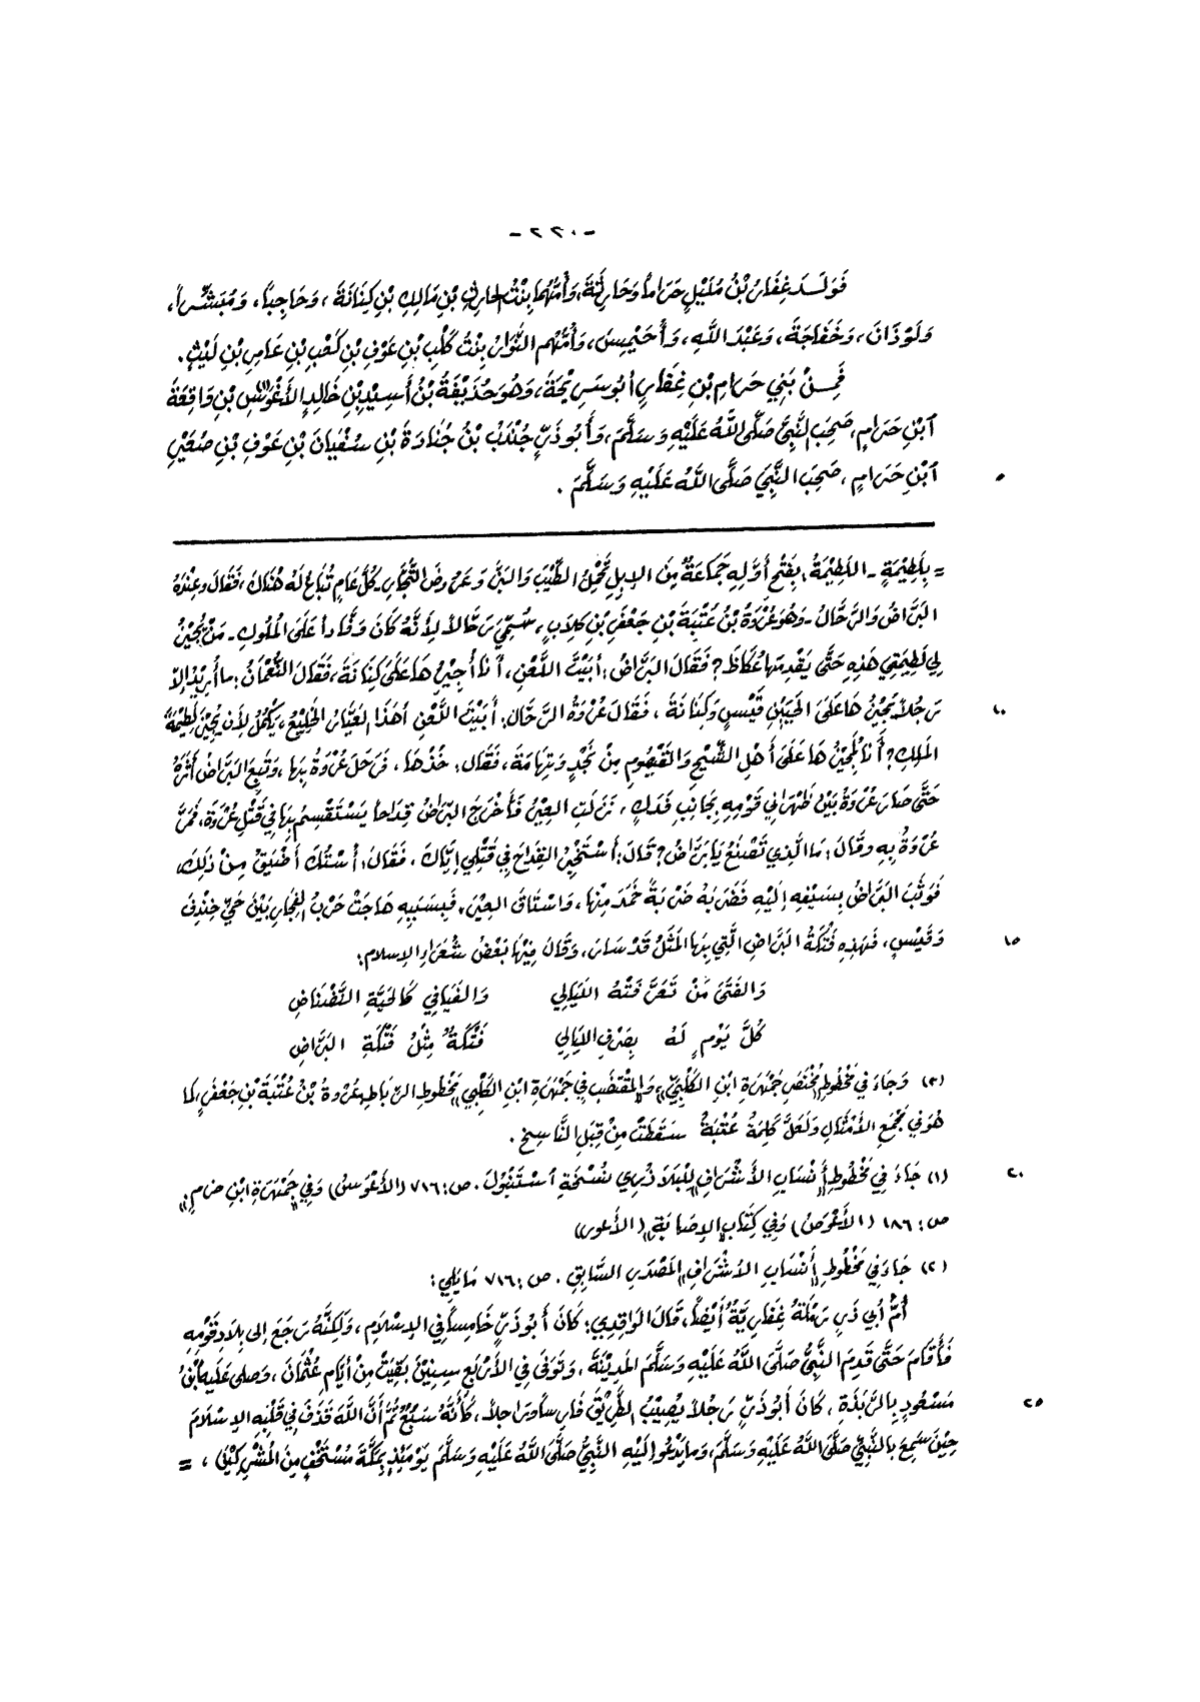 -٢٢٠-
فَوَلَدَ غِفَارُ بْنُ مُلَيْلٍ حَرَاماً وَحَارِثَةَ، وَأُمُّهُمَا بِنْتُ الحَارِثِ بْنِ مَالِكِ بْنِ كِنَانَةَ، وَحَاجِباً، وَمُبَشِّراً،
وَلَوْذَانَ، وَخَفَاجَةَ، وَعَبْدَ اللَّهِ، وَأُحَيْمِسَ، وَأُمُّهُم النَّوَارُ بِنْتُ كَلْبِ بْنِ عَوْفِ بْنِ كَعْبِ بْنِ عَامِرِ بْنِ لَيْثٍ.
فَمِنْ بَنِي حَرَامِ بْنِ غِفَارٍ أَبُو سَرِيْحَةَ، وَهُوَ حُذَيْفَةُ بْنُ أُسِيْدِ بْنِ خَالِدِ الأَغْوَسِ(١) بْنِ وَاقِعَةَ
ابْنِ حَرَامٍ، صَحِبَ النَّبِيَّ صَلَّى اللَّهُ عَلَيْهِ وَسَلَّمَ، وَأَبُو ذَرٍّ جُنْدَبُ بْنُ جُنَادَةَ بْنِ سُفْيَانَ بْنِ عَوْفِ بْنِ صُعَيْرِ
٥ ابْنِ حَرَامٍ، صَحِبَ النَّبِيَّ صَلَّى اللَّهُ عَلَيْهِ وَسَلَّمَ.
= بِلَطِيْمَةٍ - اللَطِيْمَةُ: بِفَتْحِ أَوَّلِهِ جَمَاعَةٌ مِنَ الإِبِلِ تَحْمِلُ الطِّيْبَ وَالبَزَّ وَعَرُوضَ التُّجَّارِ - كُلَّ عَامٍ تُبَاعُ لَهُ هُنَاكَ، فَقَالَ وعِنْدَهُ
البَرَّاضُ وَالرَّحَّالُ - وَهُوَ عُرْوَةُ بْنُ عُتْبَةَ بْنِ جَعْفَرِ بْنِ كِلَابٍ، سُمِّيَ رَحَّالاً لِأَنَّهُ كَانَ وَفَّاداً عَلَى المُلُوكِ - مَنْ يُجِيْزُ
لِي لَطِيْمَتِي هَذِهِ حَتَّى يَقْدِمَهَا عُكَاظَ؟ فَقَالَ البَرَّاضُ: أَبَيْتَ اللَّعْنَ، أَنَا أُجِيْزُهَا عَلَى كِنَانَةَ، فَقَالَ النُّعْمَانُ: مَا أُرِيْدُ إِلاَّ
١٠ رَجُلاً يُجِيْزُهَا عَلَى الحَيَّيْنِ قَيْسٍ وَكِنَانَةَ، فَقَالَ عُرْوَةُ الرَّحَّالُ: أَبَيْتَ اللَّعْنَ أَهَذَا العَيَّارُ الخَلِيْعُ، يَكْمُلُ لِأَن يُجِيْزَ لَطِيْمَةَ
المَلِكِ؟ أَنَا المُجِيْزُهَا عَلَى أَهْلِ الشِّيْحِ وَالقَيْصُومِ مِنْ نَجْدٍ وَتِهَامَةَ، فَقَالَ: خُذْهَا، فَرَحَلَ عُرْوَةُ بِهَا، وَتَبِعَ البَرَّاضُ أَثَرَهُ
حَتَّى صَارَ عُرْوَةُ بَيْنَ ظَهْرَانِي قَوْمِهِ بِجَانِبِ فَدَكٍ، نَزَلَتِ العِيْرُ فَأَخْرَجَ البَرَّاضُ قِدَاحاً يَسْتَقْسِمُ بِهَا فِي قَتْلِ عُرْوَةَ، فَمَرَّ
عُرْوَةُ بِهِ وقَالَ: مَا الَّذِي تَصْنَعُ يَا بَرَّاضُ؟ قَالَ: أَسْتَخْبِرُ القِدَاحَ فِي قَتْلِي إِيَّاكَ، فَقَالَ: أُسْتُكَ أَضْيَقُ مِنْ ذَلِكَ،
فَوَثَبَ البَرَّاضُ بِسَيْفِهِ إِلَيْهِ فَضَرَبَهُ ضَرْبَةً خَمَدَ مِنْهَا، وَاسْتَاقَ العِيْرَ. فَبِسَبَبِهِ هَاجَتْ حَرْبُ الفِجَارِ بَيْنَ حَيِّ خِنْدِفَ
١٥ وَقَيْسٍ، فَهَذِهِ فَتْكَةُ البَرَّاضِ الَّتِي بِهَا المَثَلُ قَدْ سَارَ، وَقَالَ فِيْهَا بَعْضُ شُعَرَاءِ الإسلام:
وَالفَتَى مَنْ تَعَرَّفَتْهُ اللَيَالِي وَالفَيَافِي كَالحَيَّةِ النَّضْنَاضِ
كُلَّ يَوْمٍ لَهُ بِصَرْفِ اللَيَالِي فَتْكَةٌ مِثْلُ فَتْكَةِ البَرَّاضِ
(٣) وَجَاءَ فِي مَخْطُوطِ «مُخْتَصَرِ جَمْهَرَةِ ابْنِ الكَلْبِيِّ» وَ«المُقْتَضَبِ فِي جَمْهَرَةِ ابْنِ الكَلْبِي» مَخْطُوطِ الرِّبَاطِ عُرْوةُ بْنُ عُتْبَةَ بْنِ جَعْفَرٍ، كَمَا
هُوَ فِي مَجْمَعِ الأَمْثَالِ وَلَعَلَّ كَلِمَةَ عُتْبَةُ سَقَطَتْ مِنْ قِبَلِ النَّاسِخِ.
٢٠ (١) جَاءَ فِي مَخْطُوطِ «أَنْسَابِ الأَشْرَافِ» لِلْبَلَاذُرِي نُسْخَةِ أُسْتَنْبُولَ. ص: ٧١٦ (الأَغْوَسُ) وَفِي «جَمْهَرَةِ ابْنِ حزمٍ»
ص: ١٨٦ (الأَغْوَصُ) وَفِي كِتَابِ «الإِصَابَةِ» (الأَعور)
(٢) جَاءَ فِي مَخْطُوطِ «أَنْسَابِ الأَشْرَافِ» المَصْدَرِ السَّابِقِ. ص: ٧١٦ مَا يَلِي:
أُمُّ أَبِي ذَرٍ رَمْلَةُ غِفَارِيَّةٌ أَيْضاً، قَالَ الوَاقِدِي: كَانَ أَبُو ذَرٍّ خَامِساً فِي الإِسْلَامِ، وَلَكِنَّهُ رَجَعَ إِلَى بِلَادِ قَوْمِهِ
فَأَقَامَ حَتَّى قَدِمَ النَّبِيُّ صَلَّى اللَّهُ عَلَيْهِ وَسَلَّمَ المَدِيْنَةَ، وَتَوَفَّى فِي الأَرْبَعِ سِنِيْنَ بَقِيَتْ مِنْ أَيَّامِ عُثْمَانَ، وَصلى عَلَيهِ ابْنُ
٢٥ مَسْعُودٍ بِالرَّبَذَةِ، كَانَ أَبُو ذَرٍّ رَجُلاً يُصِيْبُ الطَّرِيْقَ فَارِساً ورَاجِلاً، كَأَنَّهُ سَبُعٌ ثُمَّ أَنَّ اللَّهَ قَذَفَ فِي قَلْبِهِ الإِسْلَامَ
حِيْنَ سَمِعَ بِالنَّبِيِّ صَلَّى اللَّهُ عَلَيْهِ وَسَلَّمَ، وَمَا يَدْعُو إِلَيْهِ النَّبِيُّ صَلَّى اللَّهُ عَلَيْهِ وَسَلَّمَ يَوْمَئِذٍ بِمَكَّةَ مُسْتَخْفٍ مِنَ المُشْرِكِيْنَ، =